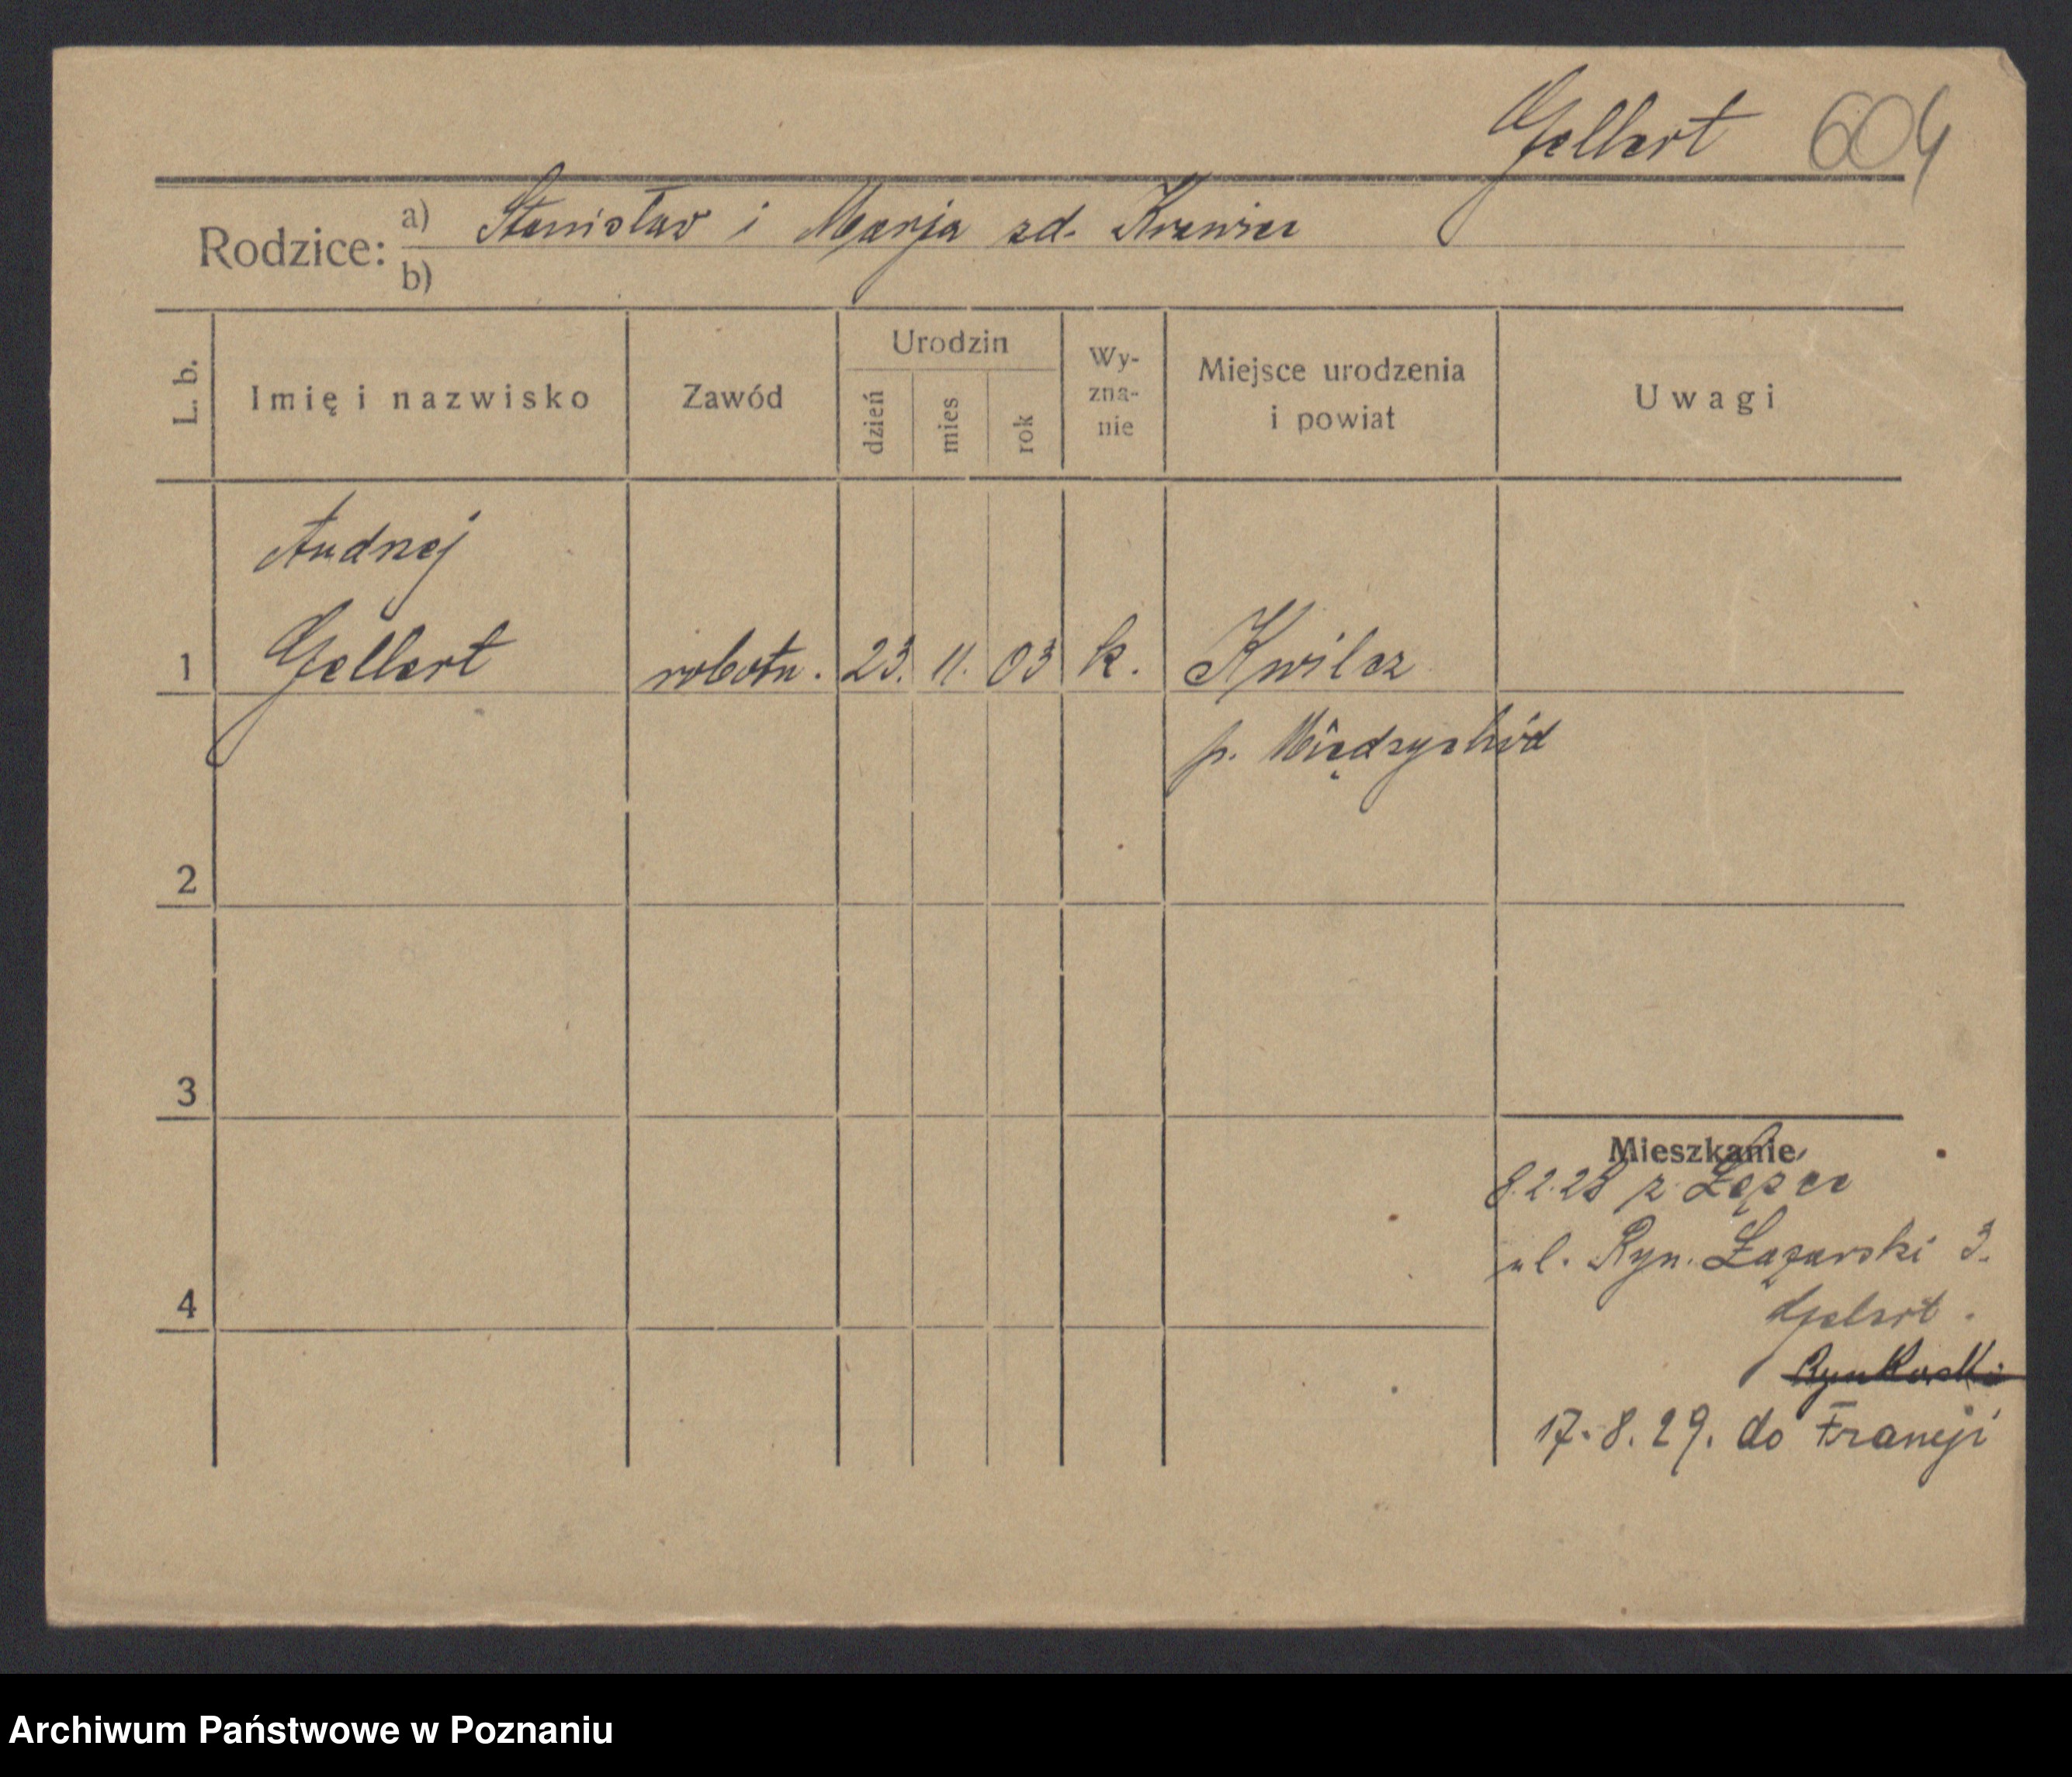 Gellert 604
Rodzice: a) Stanisław i Marja zd. Krawiec
b)
L. b. Imię i nazwisko Zawód Urodzin dzień mies rok Wy-zna-nie Miejsce urodzenia i powiat Uwagi
Andrzej
1 Gellert robotn. 23. 11. 03 k. Kwilcz
p. Międzychód
2
3
Mieszkanie
8.2.28 z
ul. Ryn. Łazarski 3.
4
Gelert.
17.8.29. do Francji
Archiwum Państwowe w Poznaniu